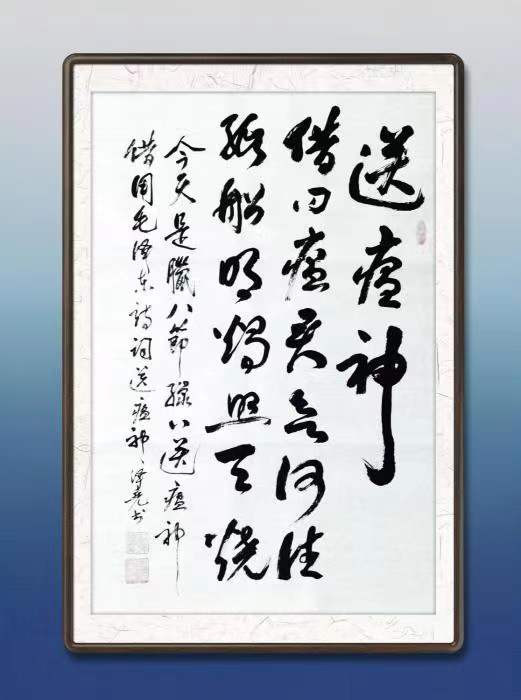 送瘟神
借问瘟君欲何往
纸船明燭照天燒
今天是臘八節錄以送瘟神
借用毛泽东詩词送瘟神